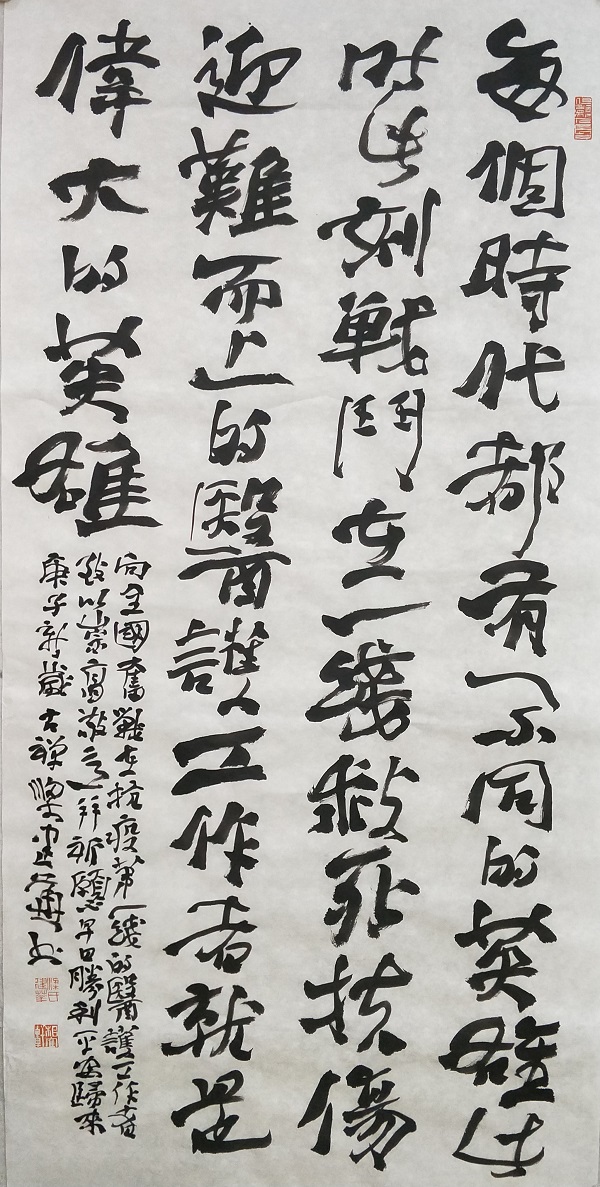 每個時代都有不同的英雄此
時此刻戰鬥在一綫救死扶傷
迎難而上的醫護人工作者就是
偉大的英雄
向全國奮戰在抗疫第一綫的醫護工作者
致以崇高敬意并祈願早日勝利平安歸來
庚子新歲古禪梁